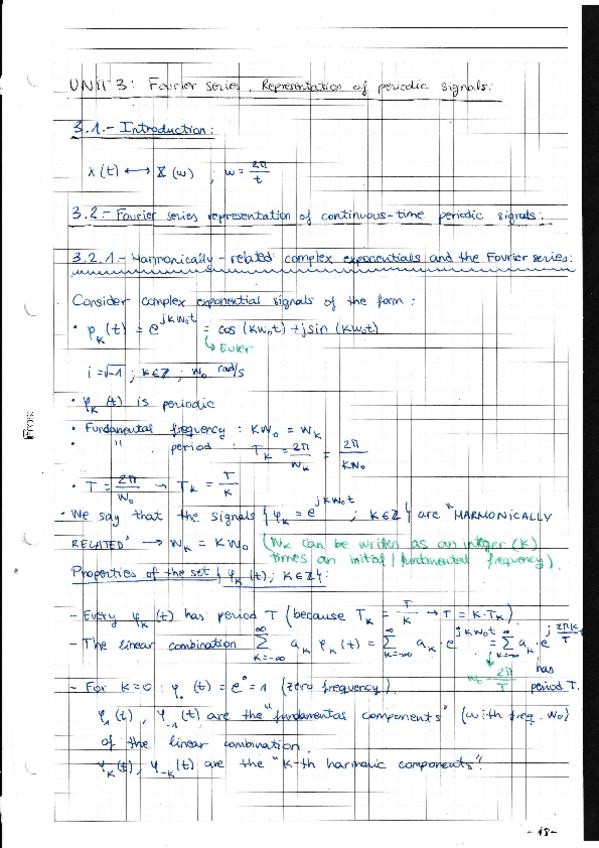 UNIT 3: Fourier series. Representation of periodic signals.
3.1.- Introduction:
x(t) ⟷ X(w) ; w = 2π/t
3.2.- Fourier series representation of continuous-time periodic signals:
3.2.1.- Harmonically-related complex exponentials and the Fourier series:
Consider complex exponential signals of the form:
• φ_K(t) = e^{jKW₀t} = cos(KW₀t) + jsin(KW₀t)
↳ Euler
i = √-1 ; K∈Z ; W₀ rad/s
• φ_K(t) is periodic
• Fundamental frequency : KW₀ = W_K
• " period : T_K = 2π/W_K = 2π/KW₀
• T = 2π/W₀ → T_K = T/K
• We say that the signals {φ_K = e^{jKW₀t} ; K∈Z} are "HARMONICALLY
RELATED" → W_K = KW₀ (W_K can be writen as an integer (K)
times an initial/fundamental frequency).
Properties of the set {φ_K(t); K∈Z}:
- Every φ_K(t) has period T (because T_K = T/K → T = K·T_K)
- The linear combination ∑_{K=-∞}^{∞} a_K φ_K(t) = ∑_{K=-∞}^{∞} a_K · e^{jKW₀t} = ∑_{K=-∞}^{∞} a_K · e^{j 2πK/T t}
W₀ = 2π/T has period T.
- For K=0 : φ₀(t) = e⁰ = 1 (zero frequency).
φ₁(t), φ₋₁(t) are the "fundamental components" (with freq. W₀)
of the linear combination.
φ_K(t), φ_{-K}(t) are the "K-th harmonic components".
-18-